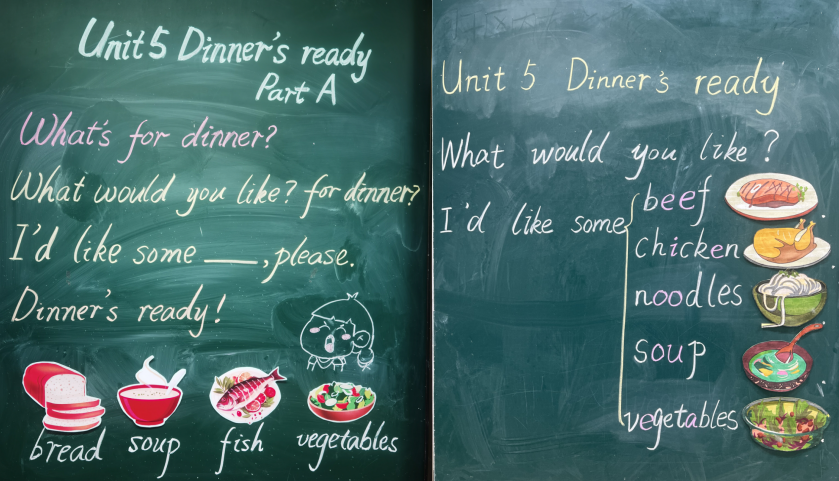 Unit 5 Dinner's ready
Part A
What's for dinner?
What would you like? for dinner?
I'd like some ____, please.
Dinner's ready!
bread soup fish vegetables
Unit 5 Dinner's ready
What would you like?
I'd like some
beef
chicken
noodles
soup
vegetables